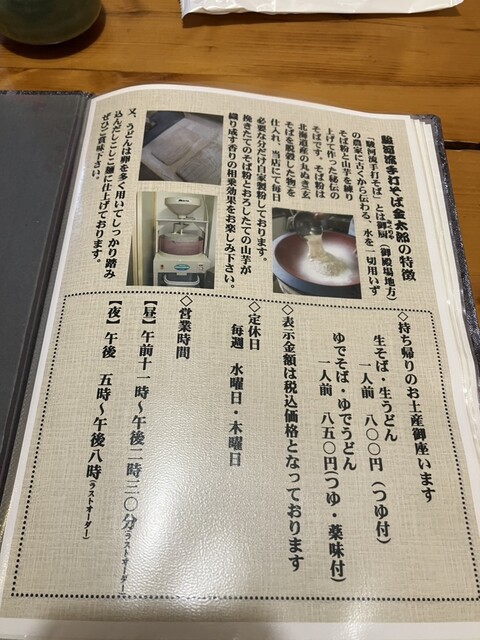 駿河流手打そば金太郎の特徴
「駿河流手打そば」とは御厨（御殿場地方）
の農家に古くから伝わる、水を一切用いず
そば粉と山芋を練り
上げて作った秘伝の
そばです。そば粉は
北海道産の丸ぬき玄
そばを脱穀した物を
仕入れ、当店にて毎日
必要な分だけ自家製粉しております。
挽きたてのそば粉とおろしたての山芋が
織り成す香りの相乗効果をお楽しみ下さい。
又、うどんは卵を多く用いてしっかり踏み
込んだしこしこ麺に仕上げております。
ぜひご賞味下さい。
◇持ち帰りのお土産御座います
生そば・生うどん
一人前 八〇〇円（つゆ付）
ゆでそば・ゆでうどん
一人前 八五〇円（つゆ・薬味付）
◇表示金額は税込価格となっております
◇定休日
毎週 水曜日・木曜日
◇営業時間
【昼】午前十一時～午後二時三〇分（ラストオーダー）
【夜】午後 五時～午後八時（ラストオーダー）